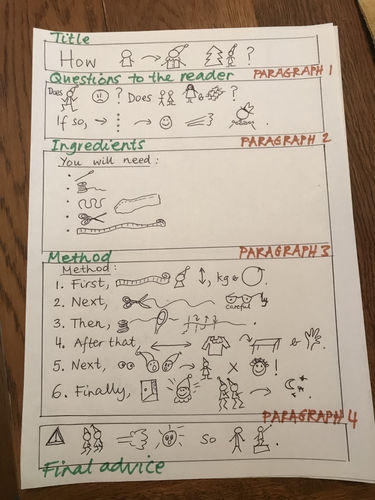 Title
How ?
Questions to the reader
PARAGRAPH 1
Does ? Does ?
If so, .
Ingredients
PARAGRAPH 2
You will need:
Method
PARAGRAPH 3
Method:
1. First, , kg & .
2. Next, careful ly
3. Then, .
4. After that, & .
5. Next, x !
6. Finally, !
PARAGRAPH 4
so .
Final advice